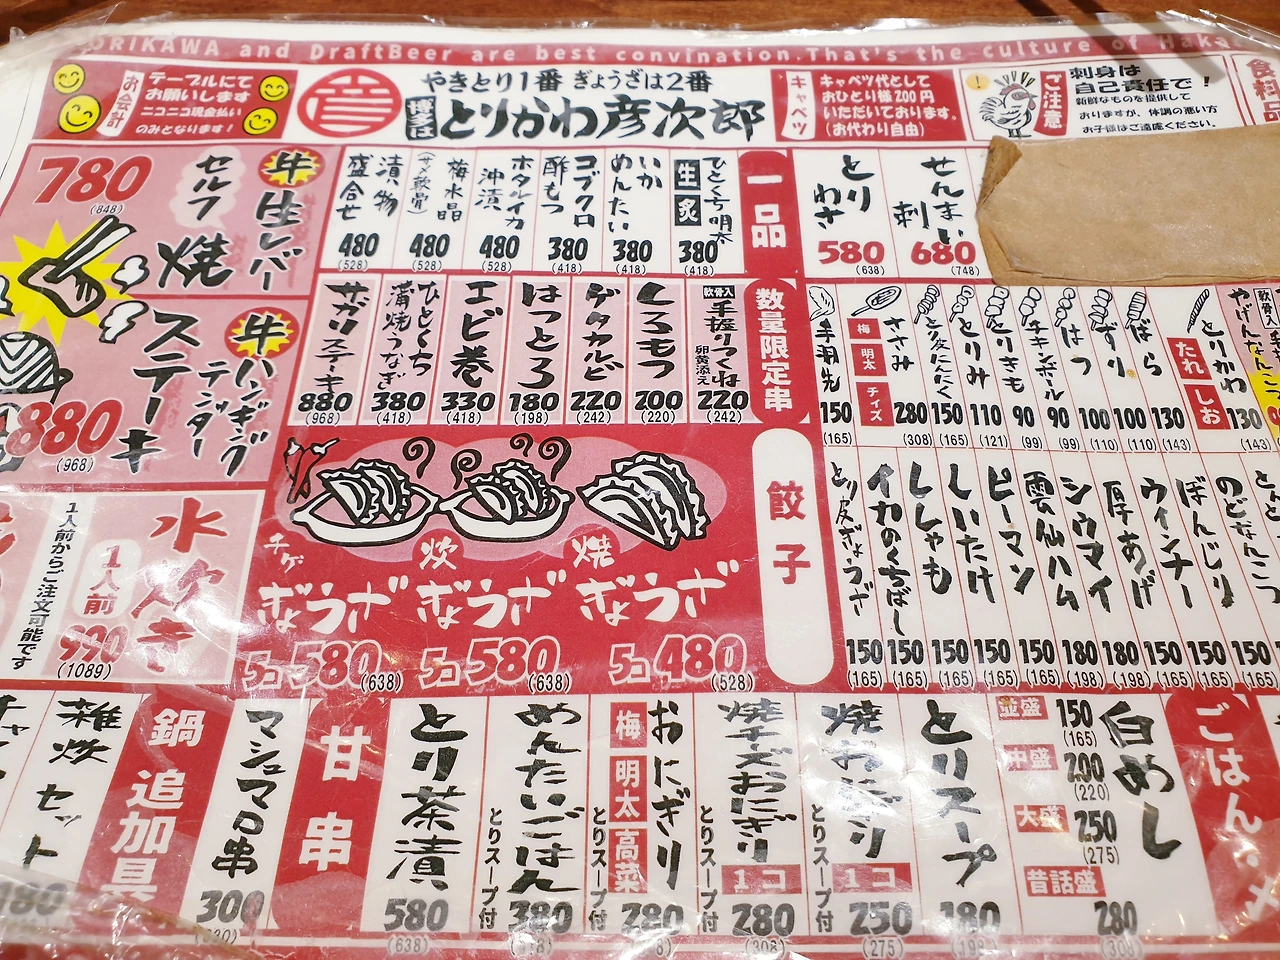 ORIKAWA and DraftBeer are best convination.That's the culture of Haka
お会計
テーブルにて
お願いします
ニコニコ現金払い
のみとなります!
やきとり1番 ぎょうざは2番
博多は
とりかわ彦次郎
キャベツ
キャベツ代として
おひとり様200円
いただいております。
(お代わり自由)
ご注意
刺身は
自己責任で!
新鮮なものを提供して
おりますが、体調の悪い方
お子様はご遠慮ください。
食料品
一品
せんまい刺
680
(748)
とりわさ
580
(638)
ひとくち明太
生
炙
380
(418)
いかめんたい
380
(418)
コブクロ酢もつ
380
(418)
ホタルイカ沖漬
480
(528)
梅水晶
(サメ軟骨)
480
(528)
漬物盛合せ
480
(528)
牛
生レバー
セルフ焼
780
(848)
牛
ハンギングテンダー
ステーキ
880
(968)
数量限定串
軟骨入
手握りつくね
卵黄添え
220
(242)
しろもつ
200
(220)
ゲタカルビ
220
(242)
はつとろ
180
(198)
エビ巻
330
(418)
ひとくち溝焼うなぎ
380
(418)
サガリステーキ
880
(968)
軟骨入
やげんなんこつ
とりかわ
たれ
しお
130
(143)
ばら
130
(143)
ずり
100
(110)
はつ
100
(110)
チキンボール
90
(99)
とりきも
90
(99)
とりみ
110
(121)
とり皮にんにく
150
(165)
ささみ
梅
明太
チィズ
280
(308)
手羽先
150
(165)
のどなんこつ
150
(165)
ぼんじり
150
(165)
ウィンナー
150
(165)
厚あげ
180
(198)
シウマイ
180
(198)
雲仙ハム
150
(165)
ピーマン
150
(165)
しいたけ
150
(165)
ししゃも
150
(165)
イカのくちばし
150
(165)
とり皮ぎょうざ
150
(165)
餃子
焼
ぎょうざ
5コ 480
(528)
炊
ぎょうざ
5コ 580
(638)
チゲ
ぎょうざ
5コ 580
(638)
水炊き
1人前
990
(1089)
1人前からご注文可能です
ごはん・
白めし
並盛
150
(165)
中盛
200
(220)
大盛
250
(275)
昔話盛
280
とりスープ
180
(198)
焼おにぎり
1コ
250
(275)
とりスープ付
焼チーズおにぎり
1コ
280
(308)
とりスープ付
おにぎり
梅
明太
高菜
280
とりスープ付
めんたいごはん
380
とりスープ付
とり茶漬
580
(638)
甘串
マシュマロ串
300
鍋 追加具
雑炊セット